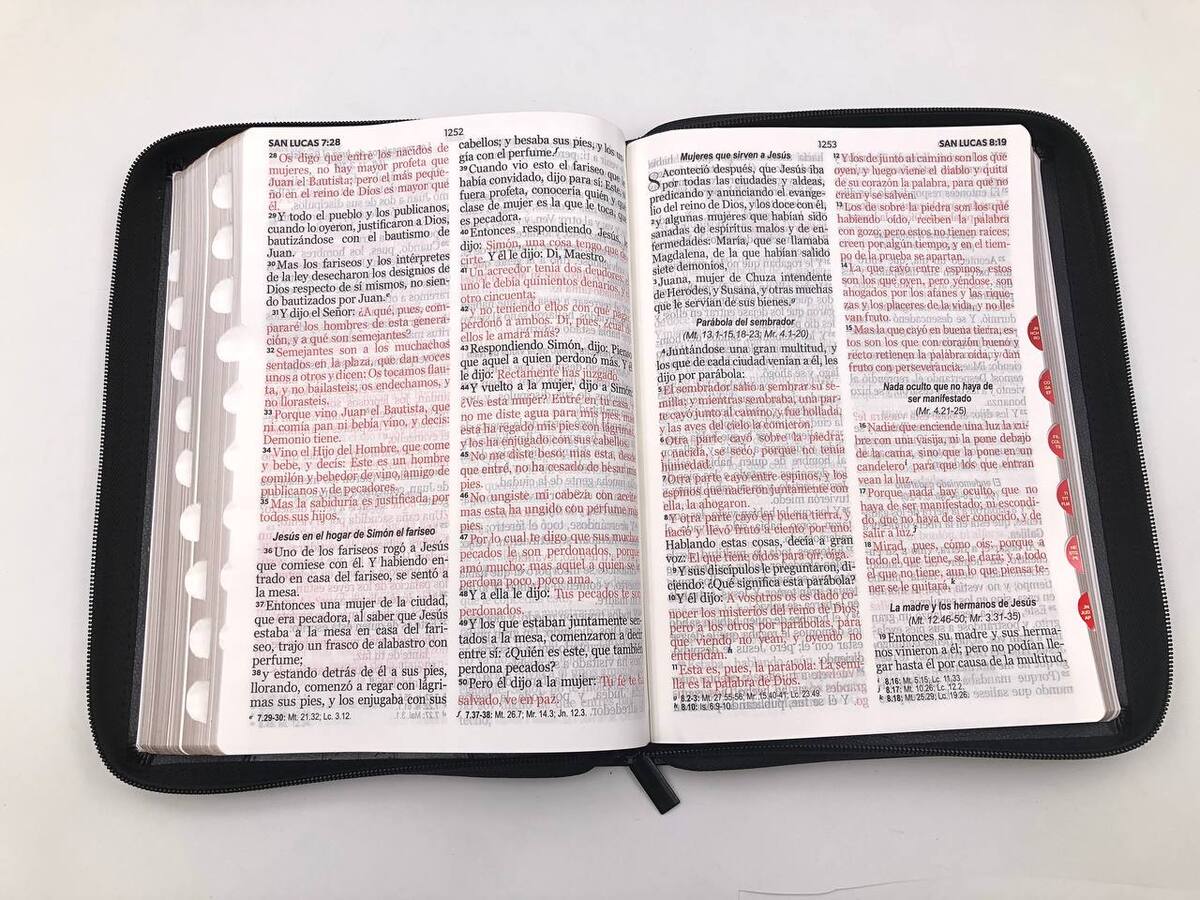 SAN LUCAS 7:28
1252
28 Os digo que entre los nacidos de
mujeres, no hay mayor profeta que
Juan el Bautista; pero el más peque-
ño en el reino de Dios es mayor que
él.
29 Y todo el pueblo y los publicanos,
cuando lo oyeron, justificaron a Dios,
bautizándose con el bautismo de
Juan.
30 Mas los fariseos y los intérpretes
de la ley desecharon los designios de
Dios respecto de sí mismos, no sien-
do bautizados por Juan.e
31 Y dijo el Señor: ¿A qué, pues, com-
pararé los hombres de esta genera-
ción, y a qué son semejantes?
32 Semejantes son a los muchachos
sentados en la plaza, que dan voces
unos a otros y dicen: Os tocamos flau-
ta, y no bailasteis; os endechamos, y
no llorasteis.
33 Porque vino Juan el Bautista, que
ni comía pan ni bebía vino, y decís:
Demonio tiene.
34 Vino el Hijo del Hombre, que come
y bebe, y decís: Este es un hombre
comilón y bebedor de vino, amigo de
publicanos y de pecadores.
35 Mas la sabiduría es justificada por
todos sus hijos.
Jesús en el hogar de Simón el fariseo
36 Uno de los fariseos rogó a Jesús
que comiese con él. Y habiendo en-
trado en casa del fariseo, se sentó a
la mesa.
37 Entonces una mujer de la ciudad,
que era pecadora, al saber que Jesús
estaba a la mesa en casa del fari-
seo, trajo un frasco de alabastro con
perfume;
38 y estando detrás de él a sus pies,
llorando, comenzó a regar con lágri-
mas sus pies, y los enjugaba con sus
e 7.29-30: Mt. 21.32; Lc. 3.12.
cabellos; y besaba sus pies, y los un
gía con el perfume.f
39 Cuando vio esto el fariseo que
había convidado, dijo para sí: Este
fuera profeta, conocería quién y qu
clase de mujer es la que le toca, qu
es pecadora.
40 Entonces respondiendo Jesús,
dijo: Simón, una cosa tengo que d
cirte. Y él le dijo: Di, Maestro.
41 Un acreedor tenía dos deudores:
uno le debía quinientos denarios, y
otro cincuenta;
42 y no teniendo ellos con qué paga
perdonó a ambos. Di, pues, ¿cuál
ellos le amará más?
43 Respondiendo Simón, dijo: Pienso
que aquel a quien perdonó más. Y
le dijo: Rectamente has juzgado.
44 Y vuelto a la mujer, dijo a Simón:
¿Ves esta mujer? Entré en tu casa,
no me diste agua para mis pies; mas
esta ha regado mis pies con lágrimas,
y los ha enjugado con sus cabellos.
45 No me diste beso; mas esta, desde
que entré, no ha cesado de besar mis
pies.
46 No ungiste mi cabeza con aceite
mas esta ha ungido con perfume mis
pies.
47 Por lo cual te digo que sus mucho
pecados le son perdonados, porque
amó mucho; mas aquel a quien se
perdona poco, poco ama.
48 Y a ella le dijo: Tus pecados te so
perdonados.
49 Y los que estaban juntamente sen-
tados a la mesa, comenzaron a decir
entre sí: ¿Quién es este, que también
perdona pecados?
50 Pero él dijo a la mujer: Tu fe te ha
salvado, ve en paz.
f 7.37-38: Mt. 26.7; Mr. 14.3; Jn. 12.3.
1253
SAN LUCAS 8:19
Mujeres que sirven a Jesús
8 Aconteció después, que Jesús iba
por todas las ciudades y aldeas,
predicando y anunciando el evange-
lio del reino de Dios, y los doce con él,
2 y algunas mujeres que habían sido
sanadas de espíritus malos y de en-
fermedades: María, que se llamaba
Magdalena, de la que habían salido
siete demonios,
3 Juana, mujer de Chuza intendente
de Herodes, y Susana, y otras muchas
que le servían de sus bienes.g
Parábola del sembrador
(Mt. 13.1-15,18-23; Mr. 4.1-20)
4 Juntándose una gran multitud, y
los que de cada ciudad venían a él, les
dijo por parábola:
5 El sembrador salió a sembrar su se-
milla; y mientras sembraba, una par-
te cayó junto al camino, y fue hollada,
y las aves del cielo la comieron.
6 Otra parte cayó sobre la piedra;
y nacida, se secó, porque no tenía
humedad.
7 Otra parte cayó entre espinos, y los
espinos que nacieron juntamente con
ella, la ahogaron.
8 Y otra parte cayó en buena tierra, y
nació y llevó fruto a ciento por uno.
Hablando estas cosas, decía a gran
voz: El que tiene oídos para oír, oiga.
9 Y sus discípulos le preguntaron, di-
ciendo: ¿Qué significa esta parábola?
10 Y él dijo: A vosotros os es dado co-
nocer los misterios del reino de Dios;
pero a los otros por parábolas, para
que viendo no vean, y oyendo no
entiendan.h
11 Esta es, pues, la parábola: La semi-
lla es la palabra de Dios.
g 8.2-3: Mt. 27.55-56; Mr. 15.40-41; Lc. 23.49.
h 8.10: Is. 6.9-10.
12 Y los de junto al camino son los que
oyen, y luego viene el diablo y quita
de su corazón la palabra, para que no
crean y se salven.
13 Los de sobre la piedra son los que
habiendo oído, reciben la palabra
con gozo; pero estos no tienen raíces;
creen por algún tiempo, y en el tiem-
po de la prueba se apartan.
14 La que cayó entre espinos, estos
son los que oyen, pero yéndose, son
ahogados por los afanes y las rique-
zas y los placeres de la vida, y no lle-
van fruto.
15 Mas la que cayó en buena tierra, es-
tos son los que con corazón bueno y
recto retienen la palabra oída, y dan
fruto con perseverancia.
Nada oculto que no haya de
ser manifestado
(Mr. 4.21-25)
16 Nadie que enciende una luz la cu-
bre con una vasija, ni la pone debajo
de la cama, sino que la pone en un
candeleroi para que los que entran
vean la luz.
17 Porque nada hay oculto, que no
haya de ser manifestado; ni escondi-
do, que no haya de ser conocido, y de
salir a luz.j
18 Mirad, pues, cómo oís; porque a
todo el que tiene, se le dará; y a todo
el que no tiene, aun lo que piensa te-
ner se le quitará.k
La madre y los hermanos de Jesús
(Mt. 12.46-50; Mr. 3.31-35)
19 Entonces su madre y sus herma-
nos vinieron a él; pero no podían lle-
gar hasta él por causa de la multitud.
i 8.16: Mt. 5.15; Lc. 11.33.
j 8.17: Mt. 10.26; Lc. 12.2.
k 8.18: Mt. 25.29; Lc. 19.26.